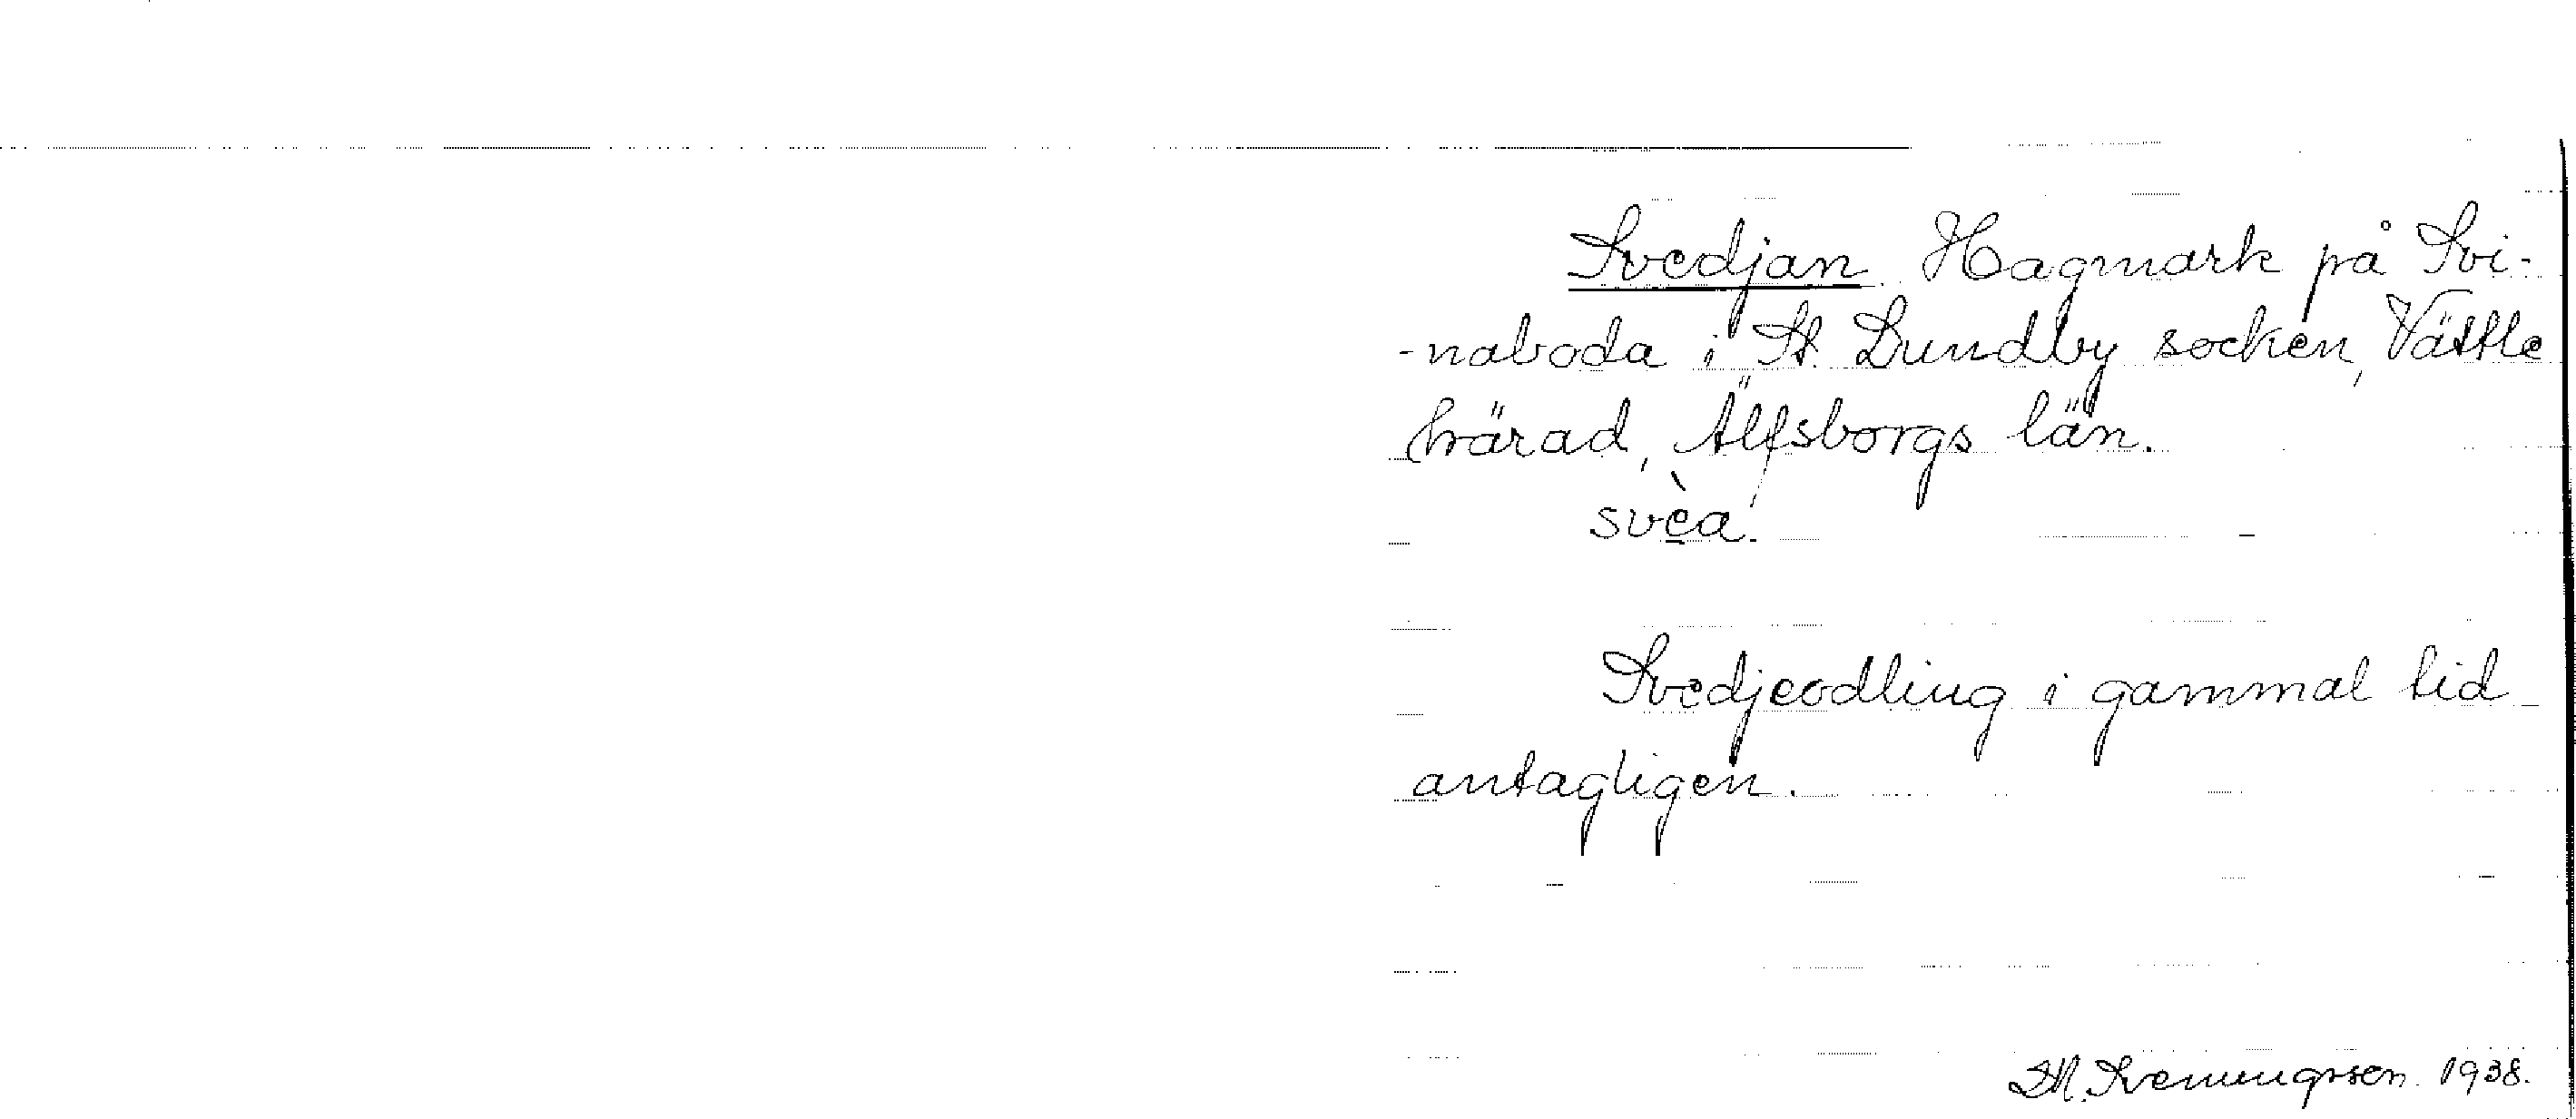 Svedjan Hagmark på Svi-
-naboda i St. Lundby socken, Vättle
härad, Älfsborgs län.
svèa.
Svedjeodling i gammal tid
antagligen.
Sveningsson 1938.